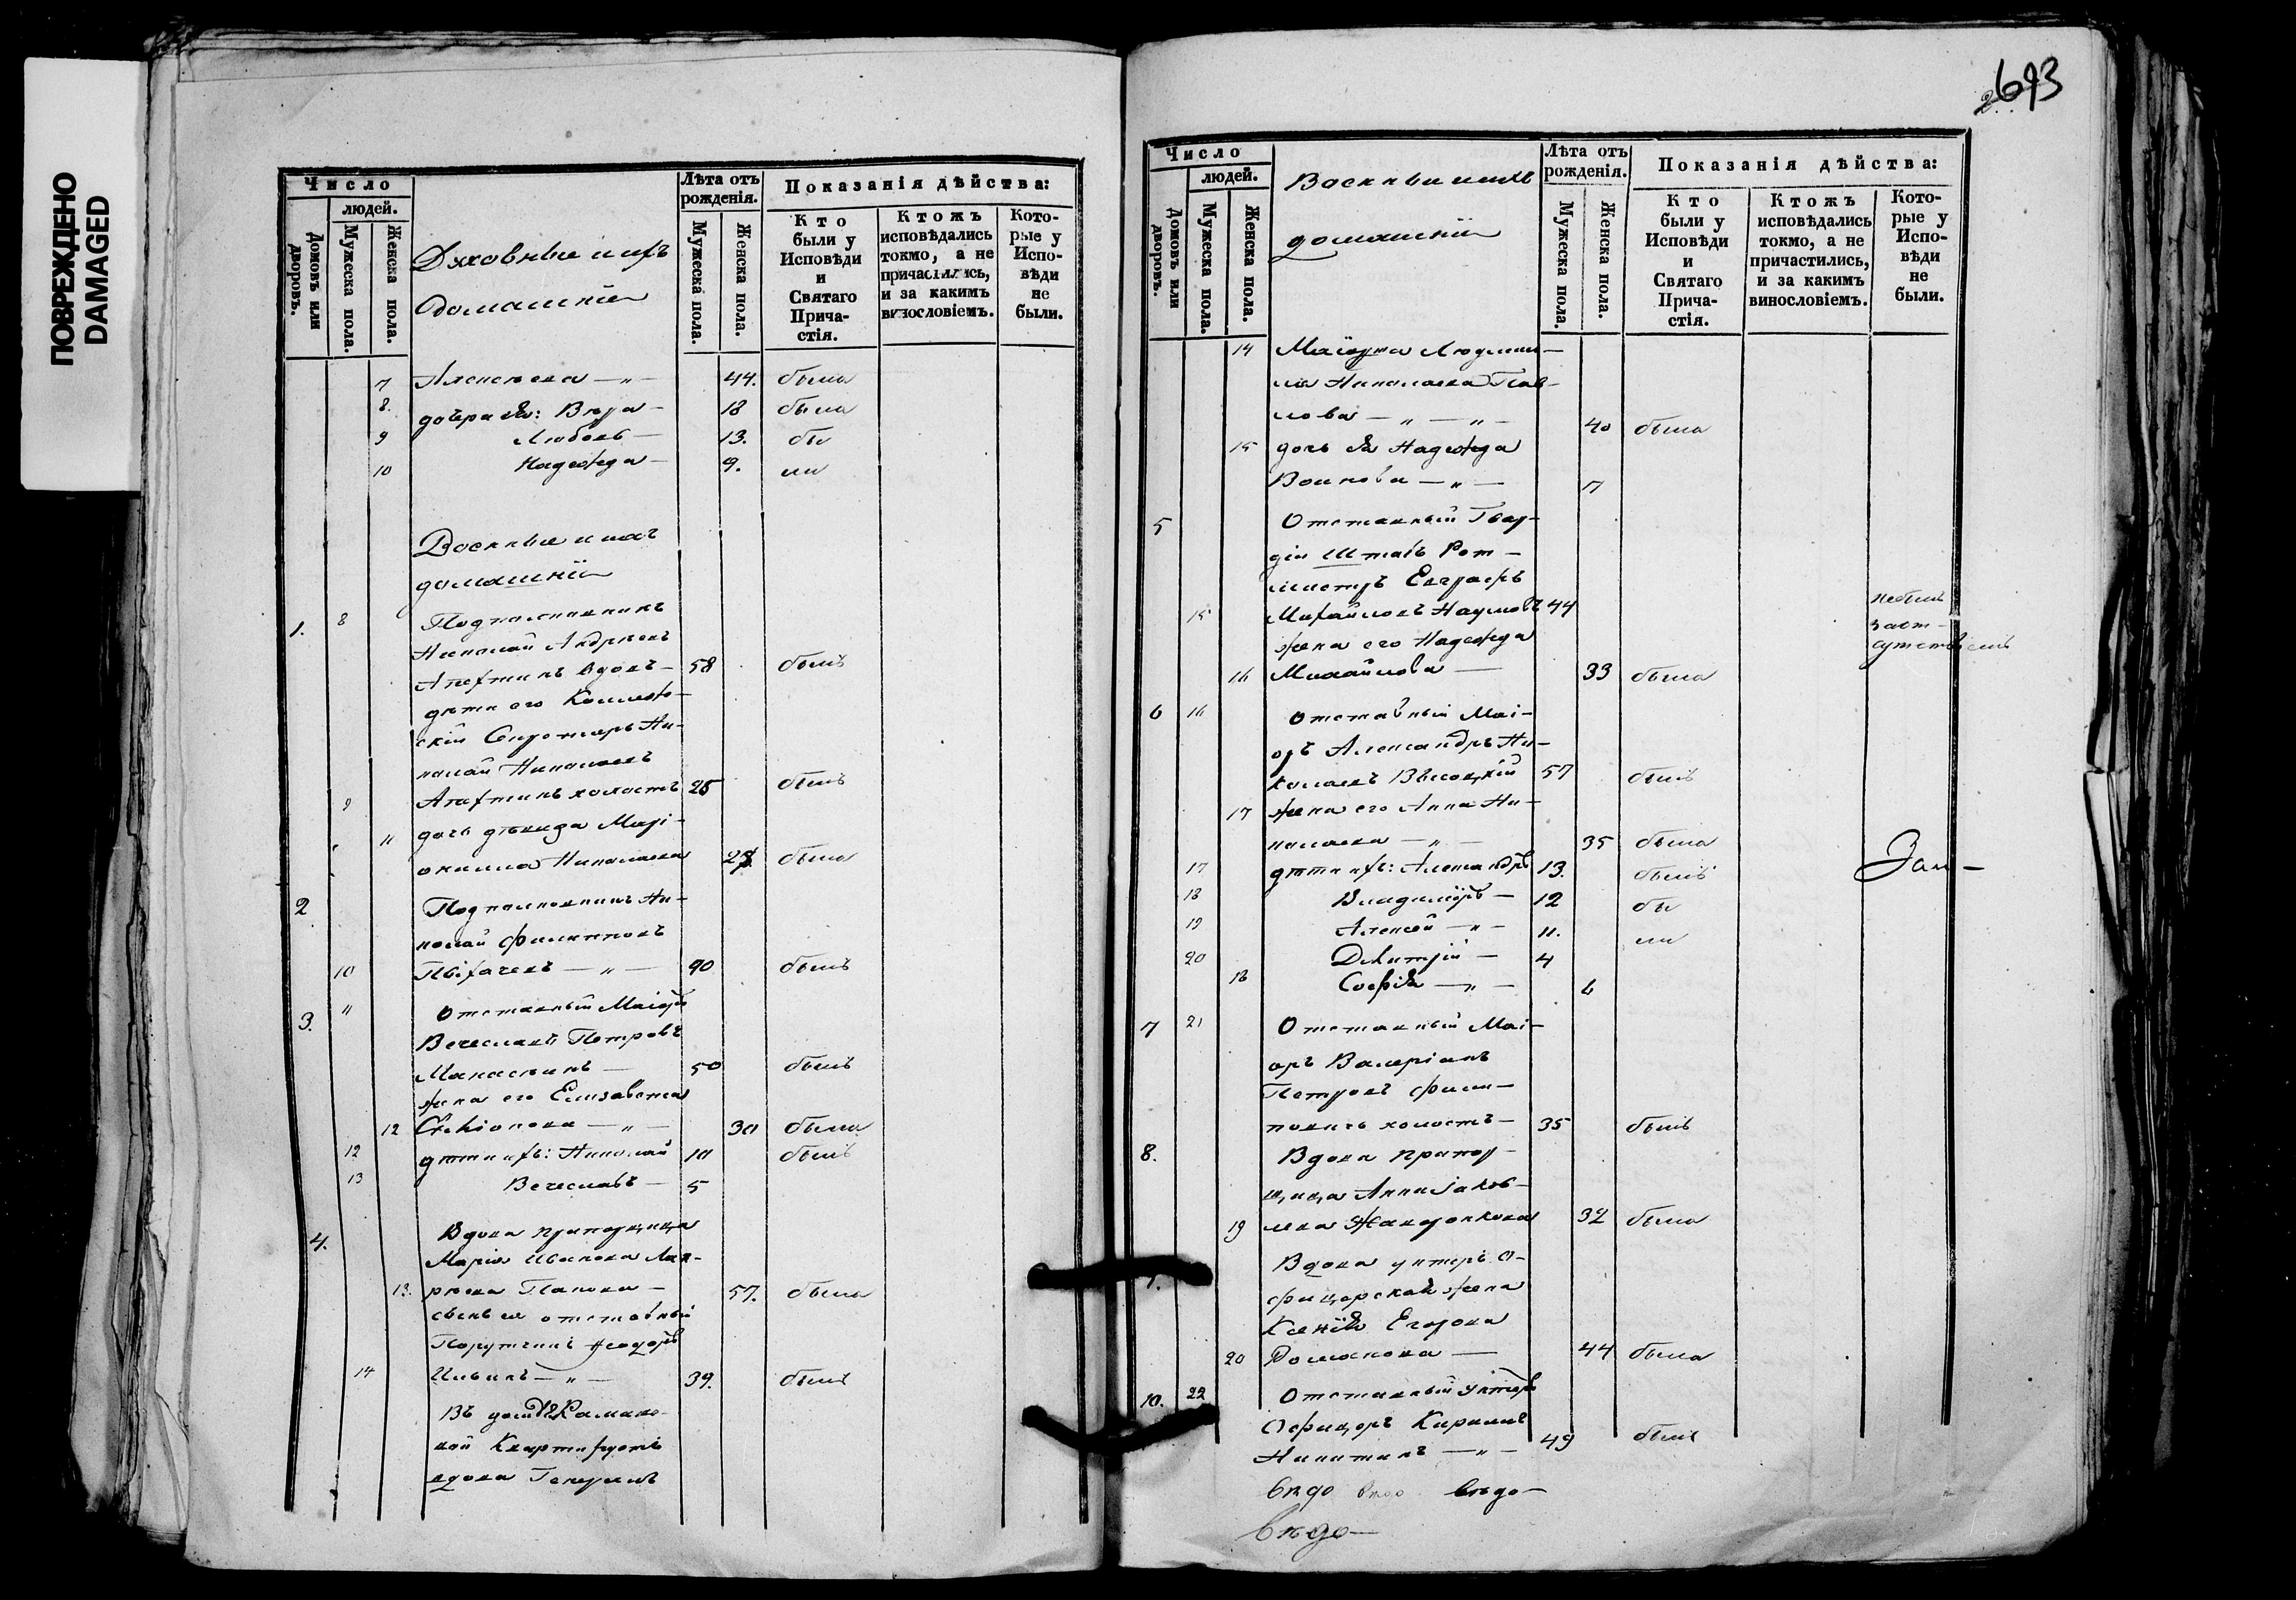 ПОВРЕЖДЕНО
DAMAGED
693
Число
людей.
Домовъ или дворовъ.
Мужеска пола.
Женска пола.
Духовные и ихъ
домашніи
Лѣта отъ рожденія.
Мужеска пола.
Женска пола.
Показанія дѣйства:
Кто были у Исповѣди и Святаго Причастія.
Ктожъ исповѣдались токмо, а не причастились, и за какимъ винословіемъ.
Которые у Исповѣди не были.
7 Алексѣева — „ — 44. была
8. дочери ея: Вѣра — 18 была
9 Любовь — 13. бы
10 Надежда — 9. ли
Военные и ихъ
домашніи
1. 8 Подполковникъ
Николай Андреевъ
вдовъ — 58 былъ
дѣти его Коллеж-
скій Секретарь Ни-
колай Николаевъ
9 холостъ 25 былъ
11 дочь дѣвица Марі-
Николаева была
2 Подполковникъ Ни-
колай Филипповъ
10 — „ — 90 былъ
3. 11 Отставный Маіоръ
Вечеславъ Петровъ
— 50 былъ
жена его Елизавета
12 — „ — 30 была
12 дѣти ихъ: Николай 10 былъ
13 Вечеславъ — 5
4. Вдова прапорщица
Марія Иванова Лав-
13. рѣва Панова — 57. была
сынъ ея отставный
Поручикъ Ѳеодоръ
14 Ивинъ — „ — 39. былъ
Въ домѣ
вой Квартируетъ
вдова
Число
людей.
Домовъ или дворовъ.
Мужеска пола.
Женска пола.
Военные и ихъ
домашніи
Лѣта отъ рожденія.
Мужеска пола.
Женска пола.
Показанія дѣйства:
Кто были у Исповѣди и Святаго Причастія.
Ктожъ исповѣдались токмо, а не причастились, и за какимъ винословіемъ.
Которые у Исповѣди не были.
14 Маіорша Людми-
ла Николаева Пав-
лова — „ — „ — 40 была
15 дочь ея Надежда
Воинова — „ — 7
5 Отставный Гвар-
діи Штабъ Рот-
мистръ Евграфъ
15 Михайловъ Наумовъ 44 небылъ
за от-
сутствіемъ
жена его Надежда
16 Михайлова — 33 была
6 16 Отставный Маі-
оръ Александръ Ни-
колаевъ Высоцкій 57 былъ
17 жена его Анна Ни-
колаева — „ — 35 была
17 дѣти ихъ: Александръ 13. былъ
18 Владиміръ — 12 бы
19 Алексѣй — „ — 11. ли
20 Дмитрій — 4
18 Софія — „ — 6
7 21 Отставный Маі-
оръ Валеріанъ
Петровъ Фили-
повичъ холостъ — 35 былъ
8. Вдова прапор-
щица Анна Яков-
19 лева 32 была
Вдова унтеръ О-
фицерская жена
Ксенія Егорова
20 Романова — 44 была
10. 22 Отставный Унтеръ
Офицеръ Кирилъ
Никитинъ — „ — 49 былъ